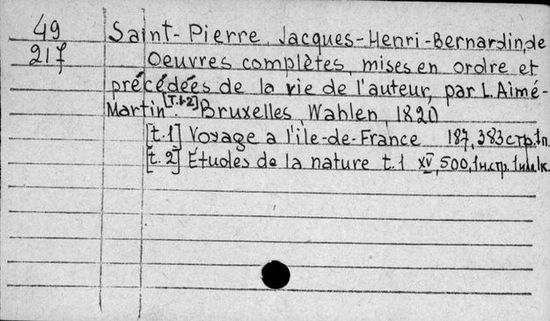 49 Saint-Pierre, Jacques-Henri-Bernardin, de
217 Oeuvres complètes, mises en ordre et
précédées de la vie de l'auteur, par L. Aimé-
Martin. [T.1-2] Bruxelles, Wahlen, 1820
[t.1] Voyage a l'ile-de-France 187, 383 стр. 1п.
[t.2] Études de la nature t.1 XV, 500, 1н.стр.